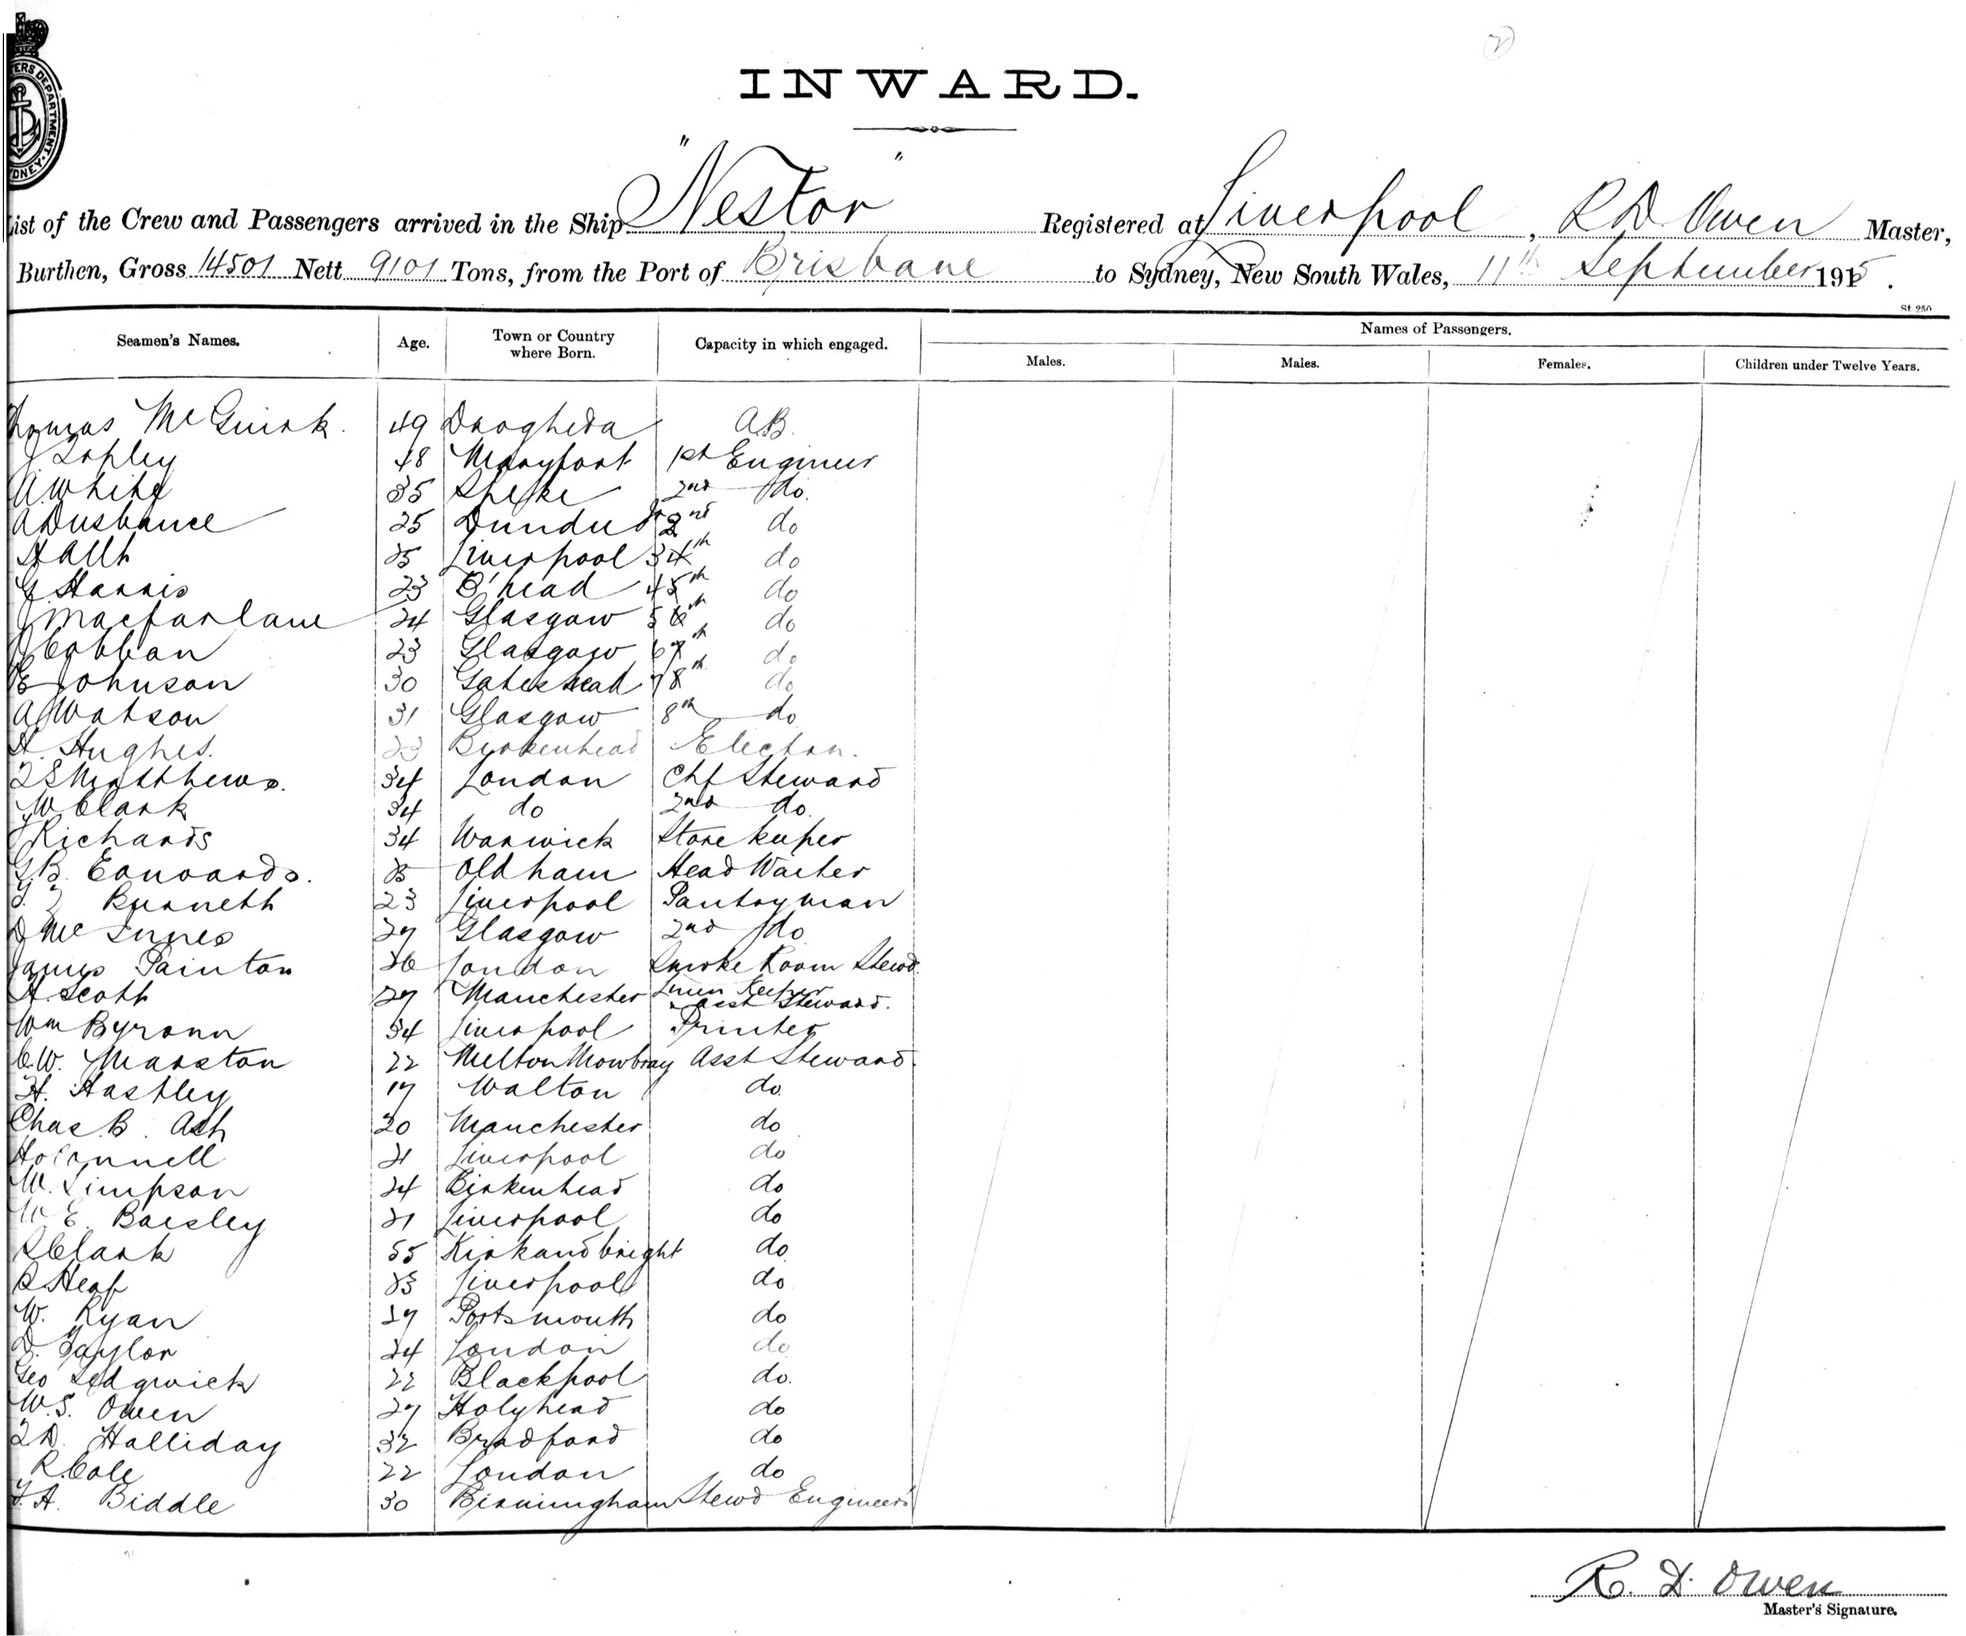 INWARD.
List of the Crew and Passengers arrived in the Ship "Nestor" Registered at Liverpool, R D Owen Master,
Burthen, Gross 14501 Nett 9101 Tons, from the Port of Brisbane to Sydney, New South Wales, 11th September 1915.
St. 250
Seamen's Names. Age. Town or Country where Born. Capacity in which engaged. Names of Passengers.
Males. Males. Females. Children under Twelve Years.
Thomas McGuirk. 49 Drogheda A.B.
48 Maryport 1st Engineer
A. White 35 Speke 2nd do.
25 Dundee Jr 2nd do
25 Liverpool 3 4th do
Harris 23 B'head 4 5th do
J Macfarlane 24 Glasgow 5 6th do
Cobban 23 Glasgow 6 7th do
E Johnson 30 Gateshead 7 8th do
A Watson 31 Glasgow 8th do
H Hughes. 23 Birkenhead Electrn.
Matthews. 34 London Chf Steward
W Clark 34 do 2nd do.
J Richards 34 Warwick Storekeeper
G B. Edwards. Oldham Head Waiter
Burneth 23 Liverpool Pantryman
D McInnes 27 Glasgow 2nd do
James Painton 26 London Smoke Room Stewd
H. Scott 27 Manchester Linen Keeper & Asst Steward.
Wm Byrom 34 Liverpool Printer
C.W. Marston 22 Melton Mowbray Asst Steward
H. Hastley 17 Walton do.
Chas. B. Ash 20 Manchester do
H O'Connell 21 Liverpool do
W. Simpson 24 Birkenhead do
W E. Baisley 21 Liverpool do
R Clark 55 Kirkandbright do
R Heaf Liverpool do
W. Ryan 27 Portsmouth do
D. Taylor 24 London do
Geo Sedgwick 22 Blackpool do.
W.S. Owen 27 Holyhead do
Halliday 32 Bradford do
R. Cole 22 London do
F.A. Biddle 30 Birmingham Stewd Engineers
R. D. Owen
Master's Signature.